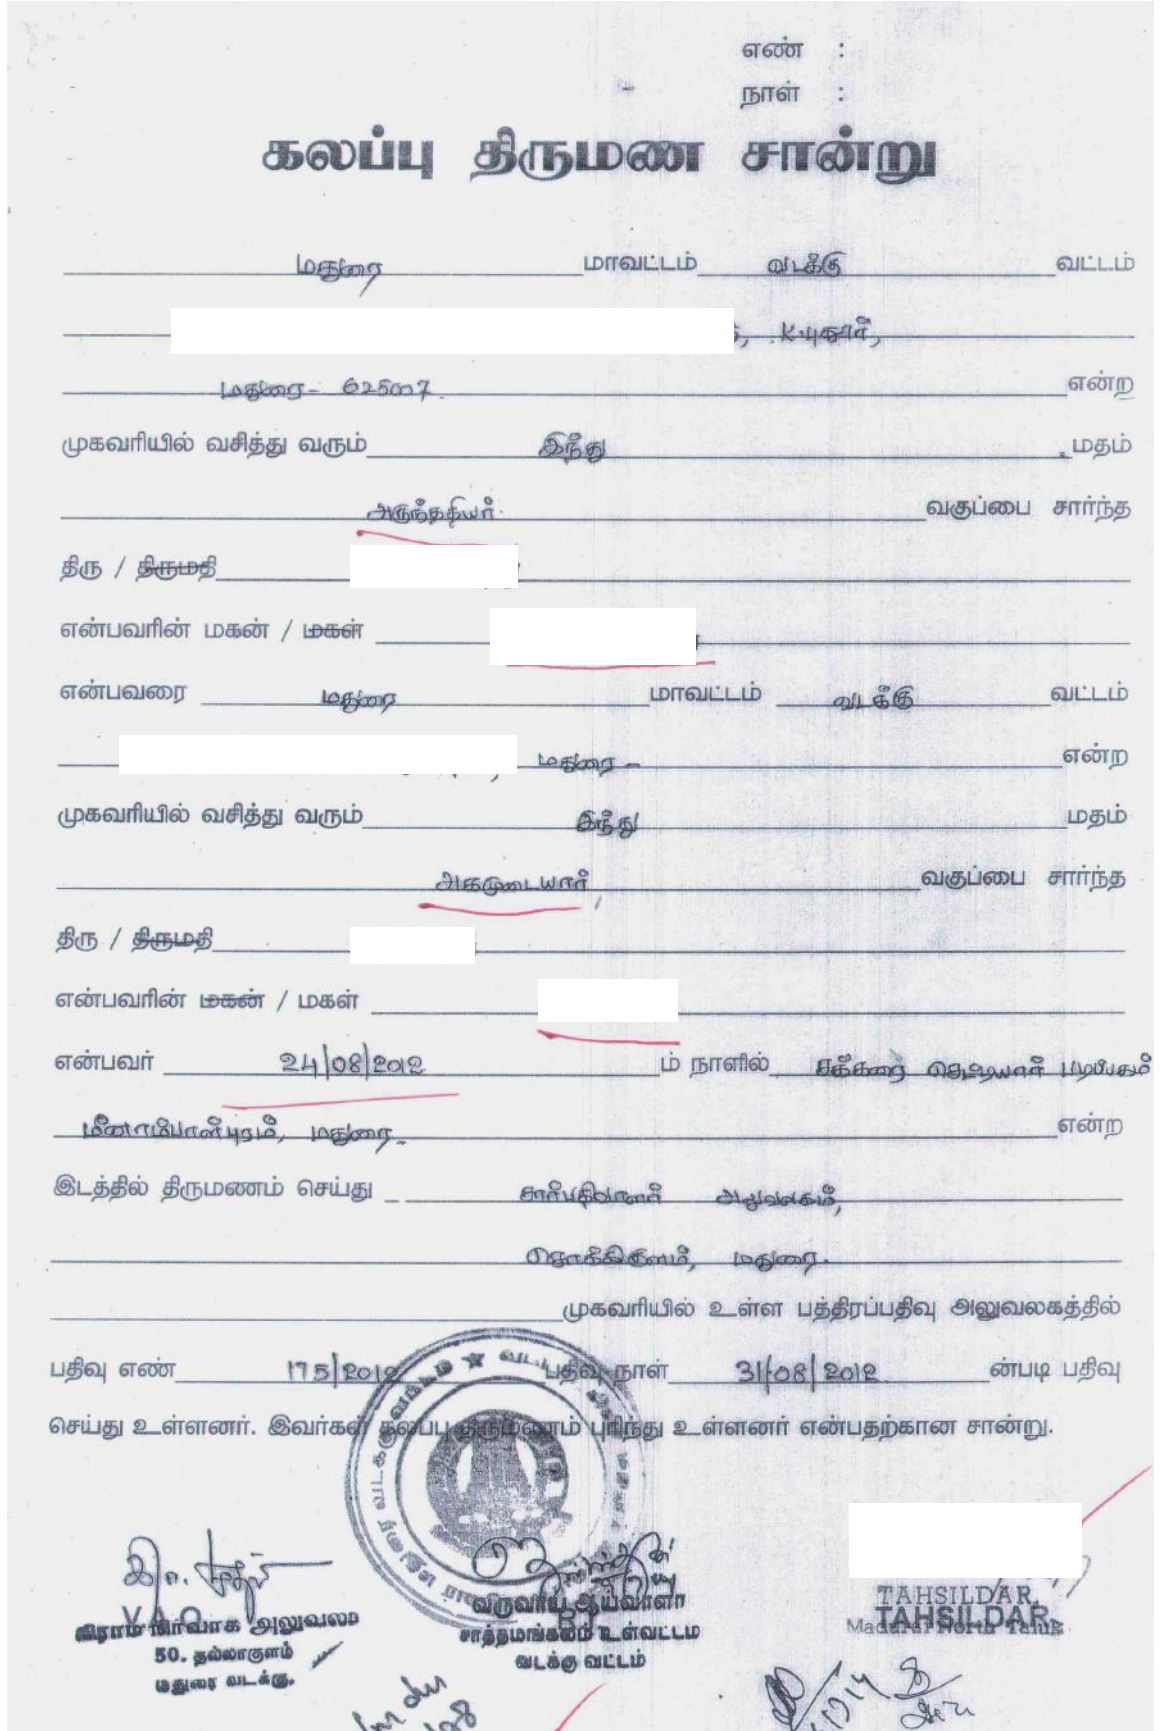 எண் :
நாள் :
கலப்பு திருமண சான்று
மதுரை மாவட்டம் வடக்கு வட்டம்
K.புதூர்,
மதுரை - 625007. என்ற
முகவரியில் வசித்து வரும் இந்து மதம்
அருந்ததியர் வகுப்பை சார்ந்த
திரு / திருமதி
என்பவரின் மகன் / மகள்
என்பவரை மதுரை மாவட்டம் வடக்கு வட்டம்
மதுரை - என்ற
முகவரியில் வசித்து வரும் இந்து மதம்
அகமுடையார் வகுப்பை சார்ந்த
திரு / திருமதி
என்பவரின் மகன் / மகள்
என்பவர் 24/08/2012 ம் நாளில் சக்கரை செட்டியார் படிப்பகம்
மீனாம்பாள்புரம், மதுரை - என்ற
இடத்தில் திருமணம் செய்து சார்பதிவாளர் அலுவலகம்,
சொக்கிகுளம், மதுரை.
முகவரியில் உள்ள பத்திரப்பதிவு அலுவலகத்தில்
பதிவு எண் 175/2012 பதிவு நாள் 31/08/2012 ன்படி பதிவு
செய்து உள்ளனர். இவர்கள் கலப்பு திருமணம் புரிந்து உள்ளனர் என்பதற்கான சான்று.
V.A.O
கிராம நிர்வாக அலுவலர்
50. தல்லாகுளம்
மதுரை வடக்கு.
வருவாய் ஆய்வாளர்
சாத்தமங்கலம் உள்வட்டம்
வடக்கு வட்டம்
TAHSILDAR,
TAHSILDAR,
Madurai North Taluk